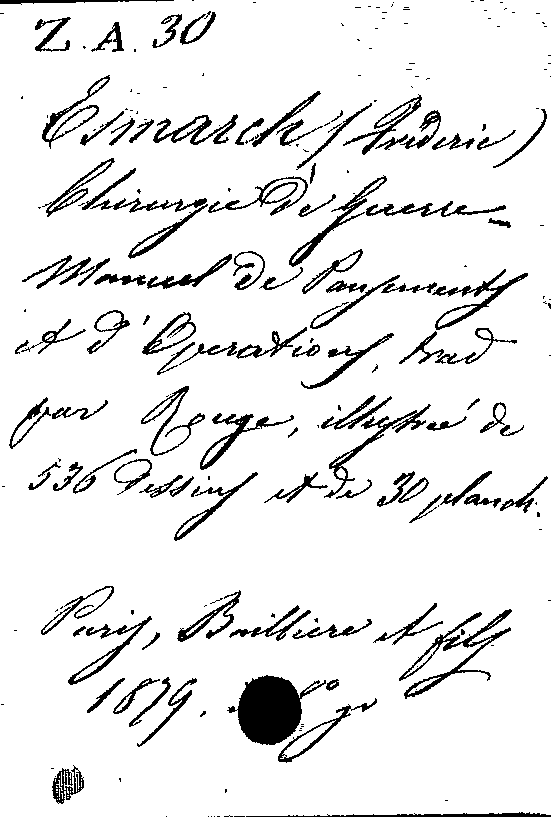 Z. A. 30
Esmarch (Fréderic)
Chirurgie de Guerre
Manuel de Pansements
et d'Opérations, trad
par Rouge, illustrée de
536 dessins et de 30 planch.
Paris, Baillière et fils
1879. 8º gr